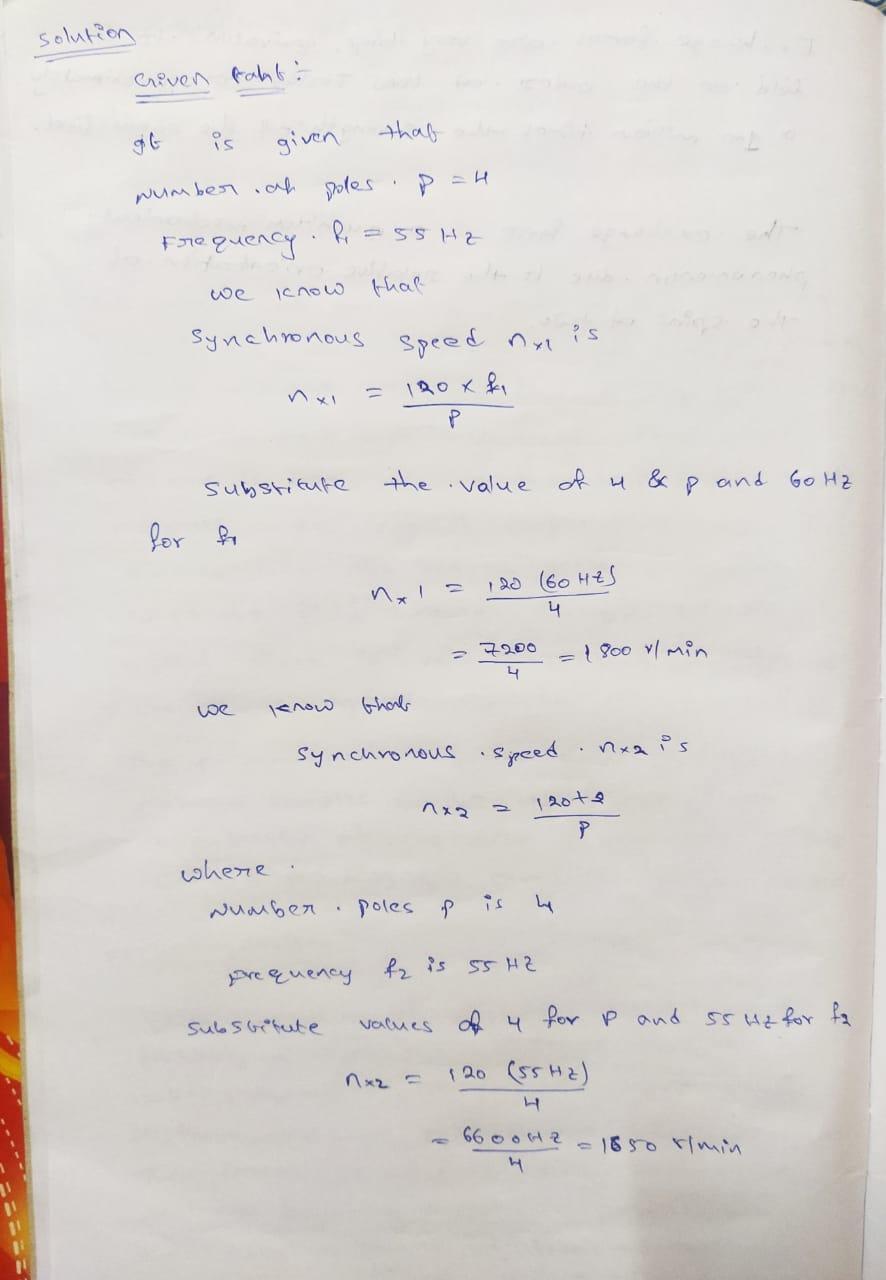 Solution
Given
It is given that
Number of poles . P = 4
Frequency . f₁ = 55 Hz
we know that
Synchronous speed nx1 is
nx1 = 120 x f₁
P
Substitute the . value of 4 & p and 60 Hz
for f₁
nx1 = 120 (60 Hz)
4
= 7200 = 1800 r/min
4
we know that
Synchronous . speed . nx2 is
nx2 =
P
where .
Number . poles p is 4
frequency f₂ is 55 HZ
Substitute values of 4 for P and 55 Hz for f₂
nx2 = 120 (55 Hz)
4
= 6600 HZ = 1650 r/min
4